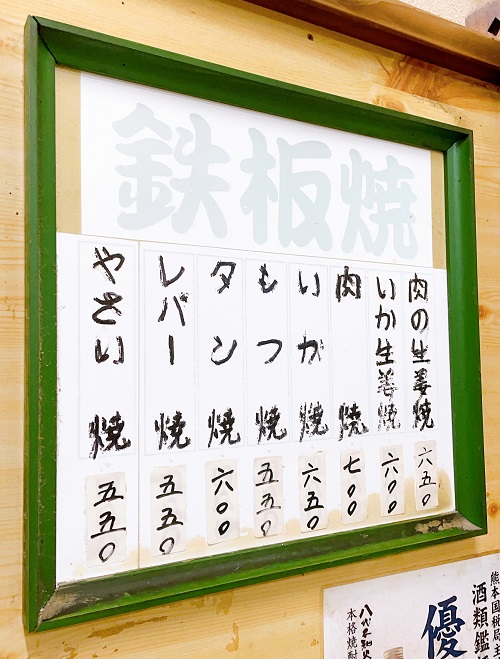 鉄板焼
肉の生姜焼 六五〇
いか生姜焼 六〇〇
肉焼 七〇〇
いか焼 六五〇
もつ焼 五五〇
タン焼 六〇〇
レバー焼 五五〇
やさい焼 五五〇
熊本国税局主
酒類鑑
優
本格焼酎